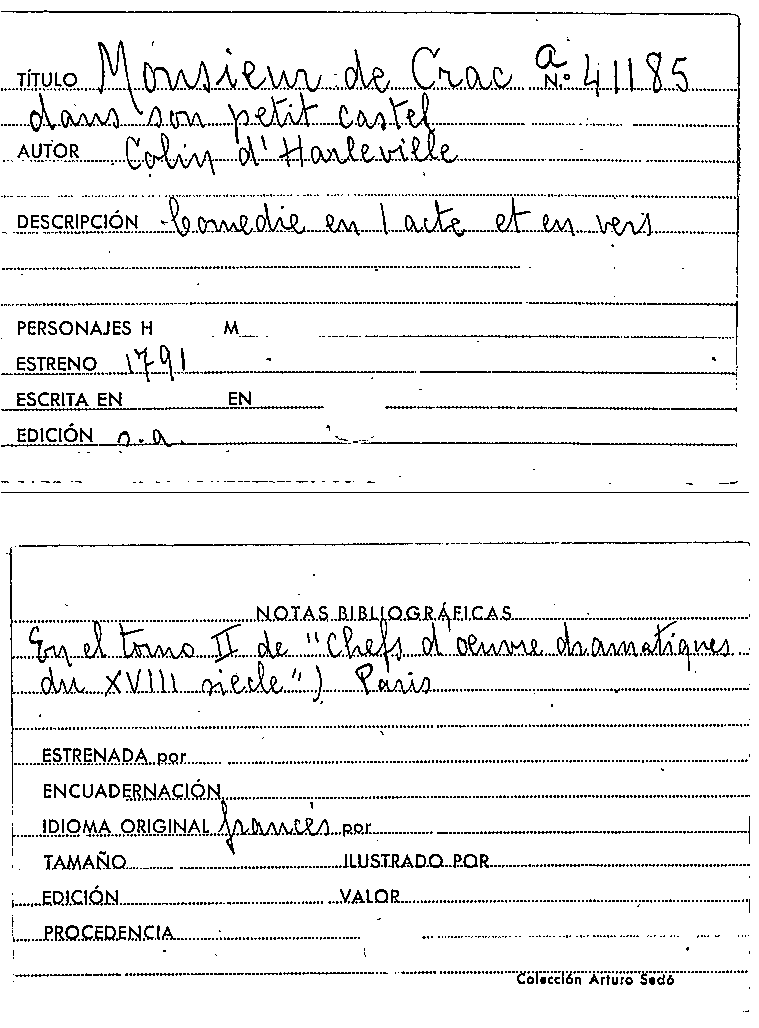 TÍTULO Monsieur de Crac a N.º 41185
dans son petit castel
AUTOR Colin d'Harleville
DESCRIPCIÓN Comedie en 1 acte et en vers
PERSONAJES H M
ESTRENO 1791
ESCRITA EN EN
EDICIÓN s.a.
NOTAS BIBLIOGRÁFICAS
En el tomo II de "Chefs d'oeuvre dramatiques
du XVIII siecle") Paris
ESTRENADA por
ENCUADERNACIÓN
IDIOMA ORIGINAL francés por
TAMAÑO ILUSTRADO POR
EDICIÓN VALOR
PROCEDENCIA
Colección Arturo Sedó